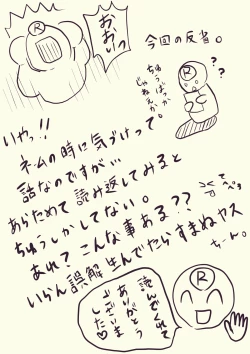 おおいっ
R
今回の反省。
R
??
ちゅうばっか
じゃねぇか。
いやっ!!
ネームの時に気づけって。
話なのですが…
あらためて読み返してみると
ちゅうしかしてない。
あれ?こんな事ある??
いらん誤解生んでたらすまぬヤス
てへぺろ
ちーん。
R
読んでくれて
ありがとう
ございま
した